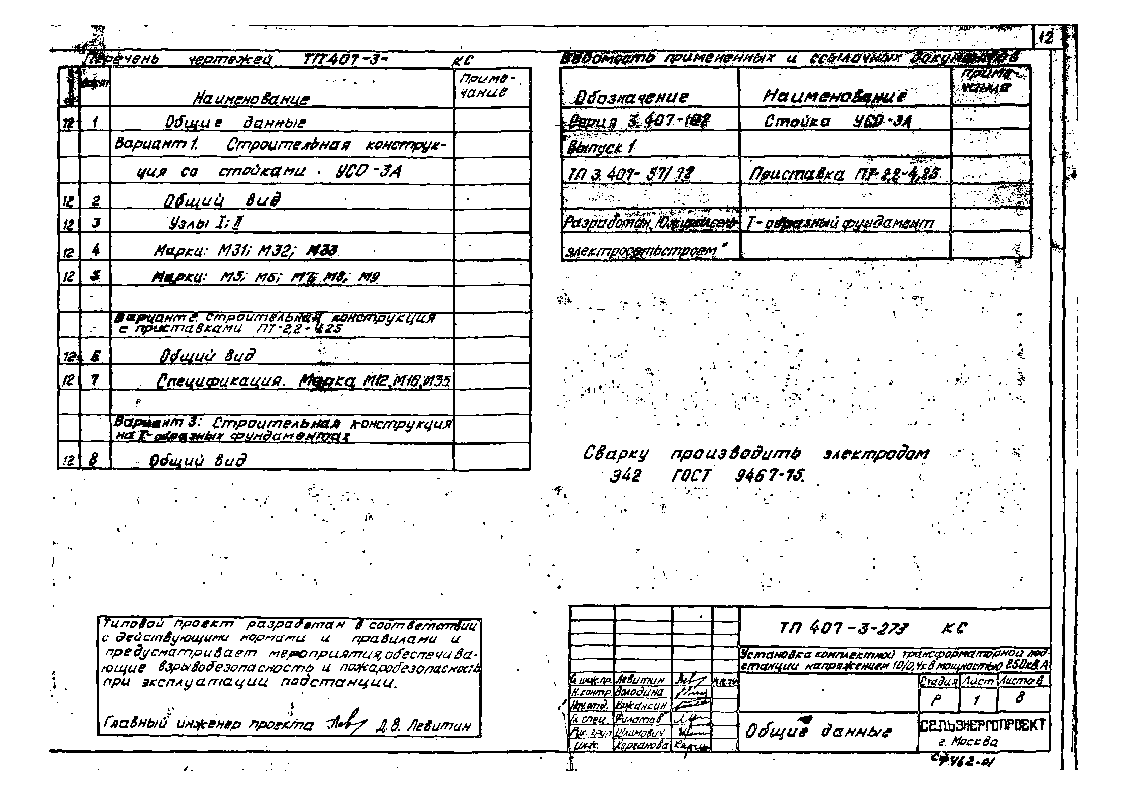 12
Перечень чертежей ТП 407-3- КС
Наименование Приме-
чание
12 1 Общие данные
Вариант 1. Строительная конструк-
ция со стойками УСО-3А
12 2 Общий вид
12 3 Узлы I; II
12 4 Марки: М31; М32; М33
12 5 Марки: М5; М6; М7; М8; М9
Вариант 2. Строительная конструкция
с приставками ПТ-2,2-4,25
12 6 Общий вид
12 7 Спецификация. Марка М12, М16, М35
Вариант 3: Строительная конструкция
на Т-образных фундаментах
12 8 Общий вид
Ведомость примененных и ссылочных документов
Обозначение Наименование Приме-
чание
Серия 3.407-102 Стойка УСО-3А
Выпуск 1
ТП 3.407-57/72 Приставка ПТ-2,2-4,25
Разработан Т-образный фундамент
электросетьстроем"
Сварку производить электродом
Э42 ГОСТ 9467-75.
Типовой проект разработан в соответствии
с действующими нормами и правилами и
предусматривает мероприятия, обеспечива-
ющие взрывобезопасность и пожаробезопасность
при эксплуатации подстанции.
Главный инженер проекта Д.В. Левитин
ТП 407-3-273 КС
Установка комплектной трансформаторной под
станции напряжением 10/0,4кВ мощностью 250кВА
Гл. инж. пр. Левитин
Н.контр. Володина
Нач.отд.
Гл. спец. Филатов
Рук. груп.
Инж.
Стадия Лист Листов
Р 1 8
Общие данные
СЕЛЬЭНЕРГОПРОЕКТ
г. Москва